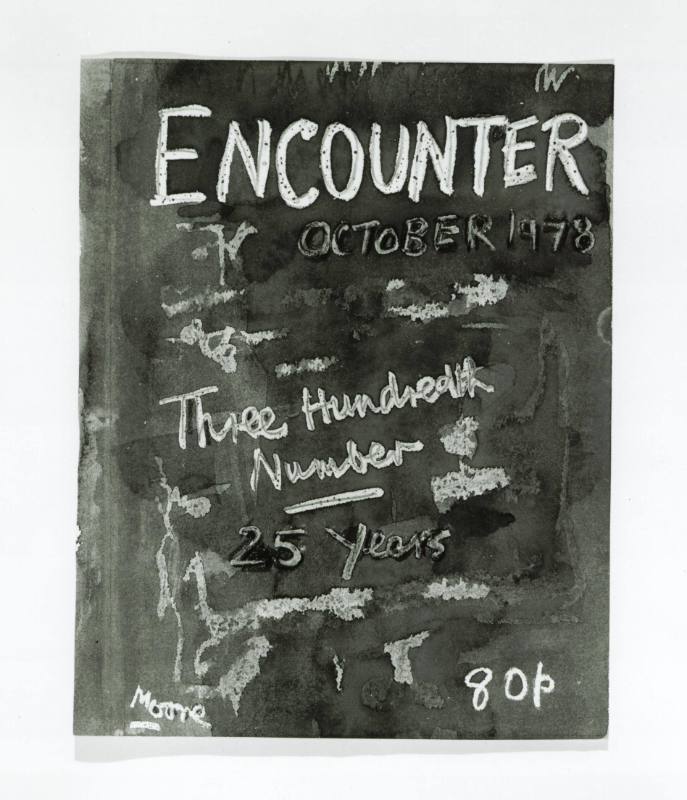 ENCOUNTER
OCTOBER 1978
Three Hundredth
Number
25 Years
80p
Moore